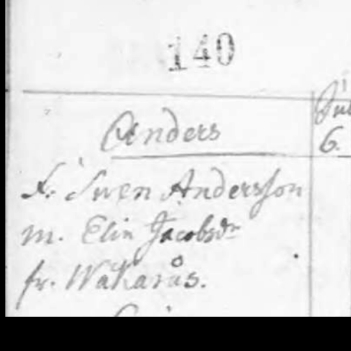 140
Anders
6.
F. Swen Andersson
m. Elin Jacobsdr
fr. Wakarås.